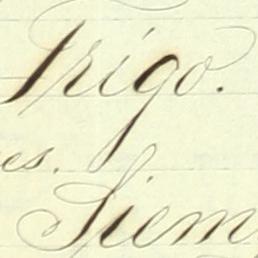 Trigo.
es.
Siem